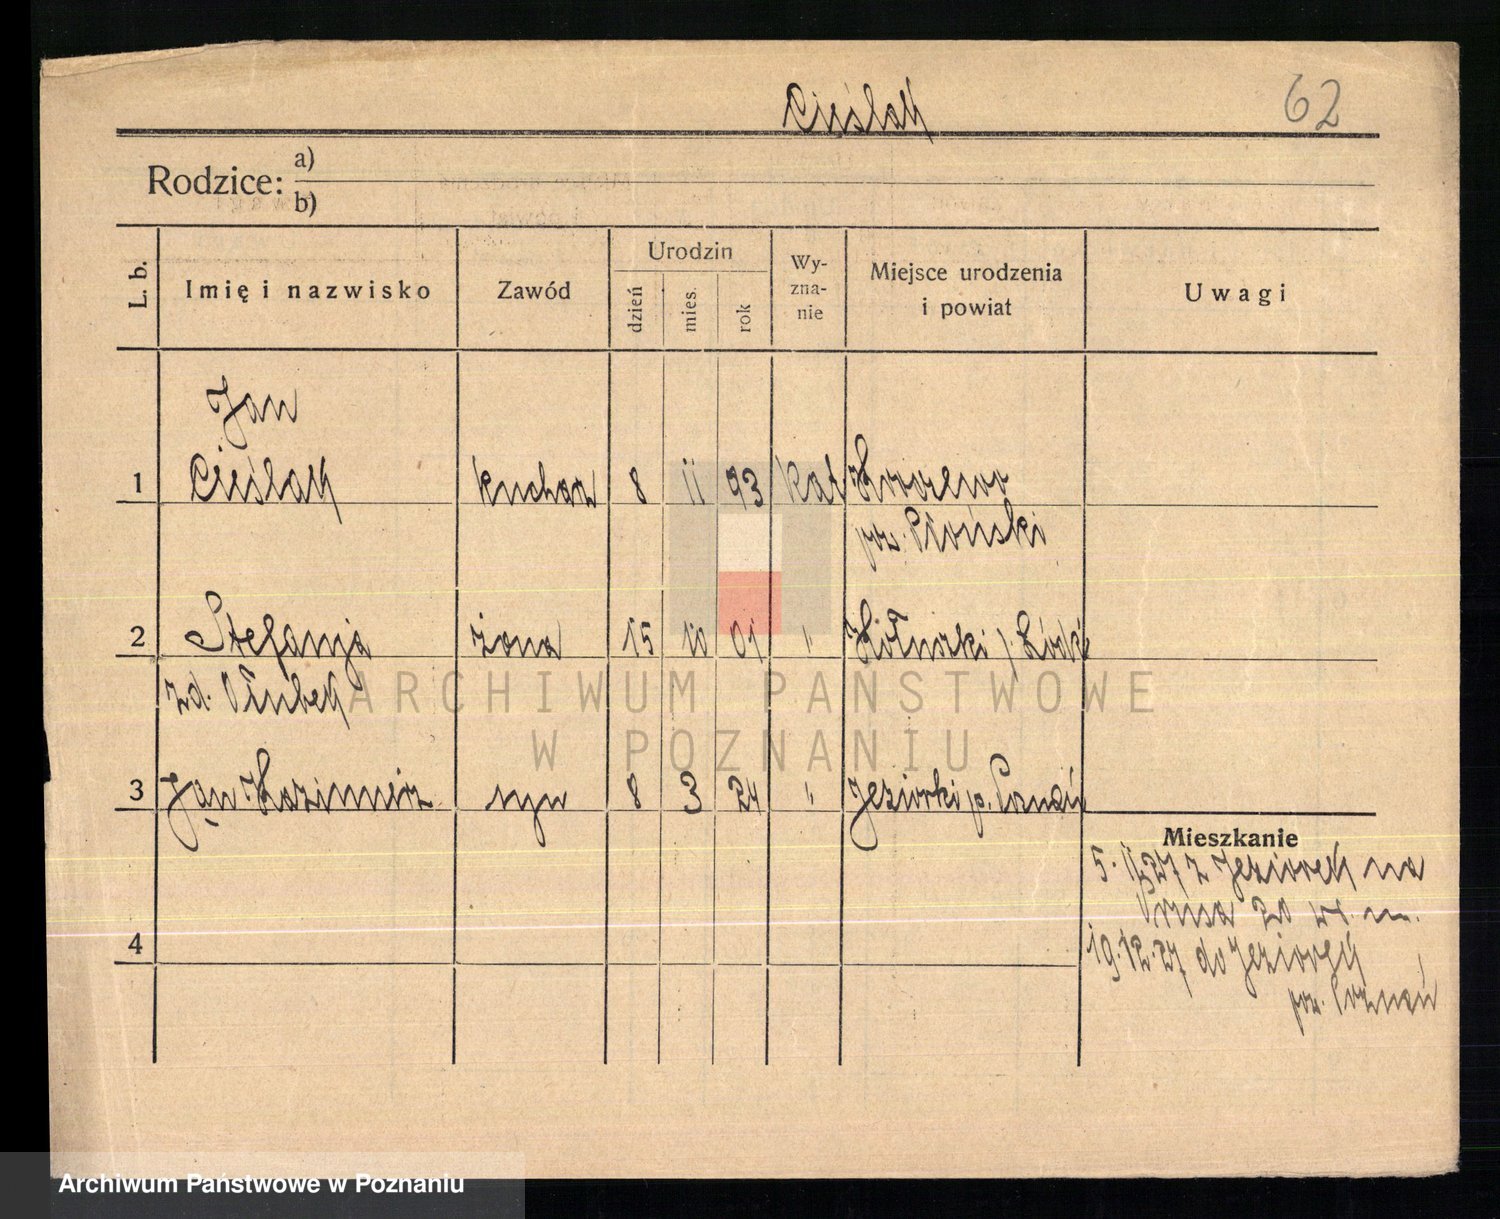 Cieślak
62
Rodzice:
a)
b)
L. b.
Imię i nazwisko
Zawód
Urodzin
dzień
mies.
rok
Wy-
zna-
nie
Miejsce urodzenia
i powiat
Uwagi
Jan
1 Cieślak kucharz 8 11 93 kat
pow. Płoński
2 Stefanja żona 15 10 01 "
zd.
3 Jan Kazimierz syn 8 3 24 " Jeziorki p. Poznań
Mieszkanie
5. 11.27 z Jeziorek na
Prusa 20
4
19.12.27 do Jeziorek
pow. Poznań
ARCHIWUM PAŃSTWOWE
W POZNANIU
Archiwum Państwowe w Poznaniu